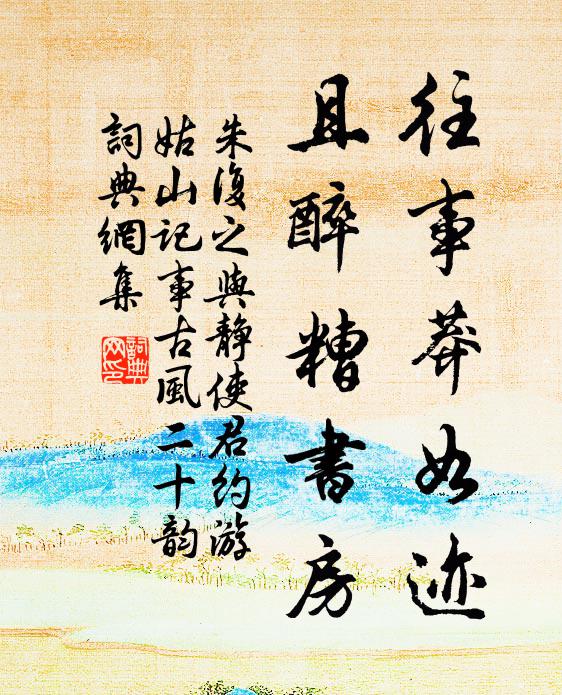 往事莽如迹
且醉糟書房
朱復之與静使君約游
姑山记事古風二十韵
詞典網集
詞典
网印